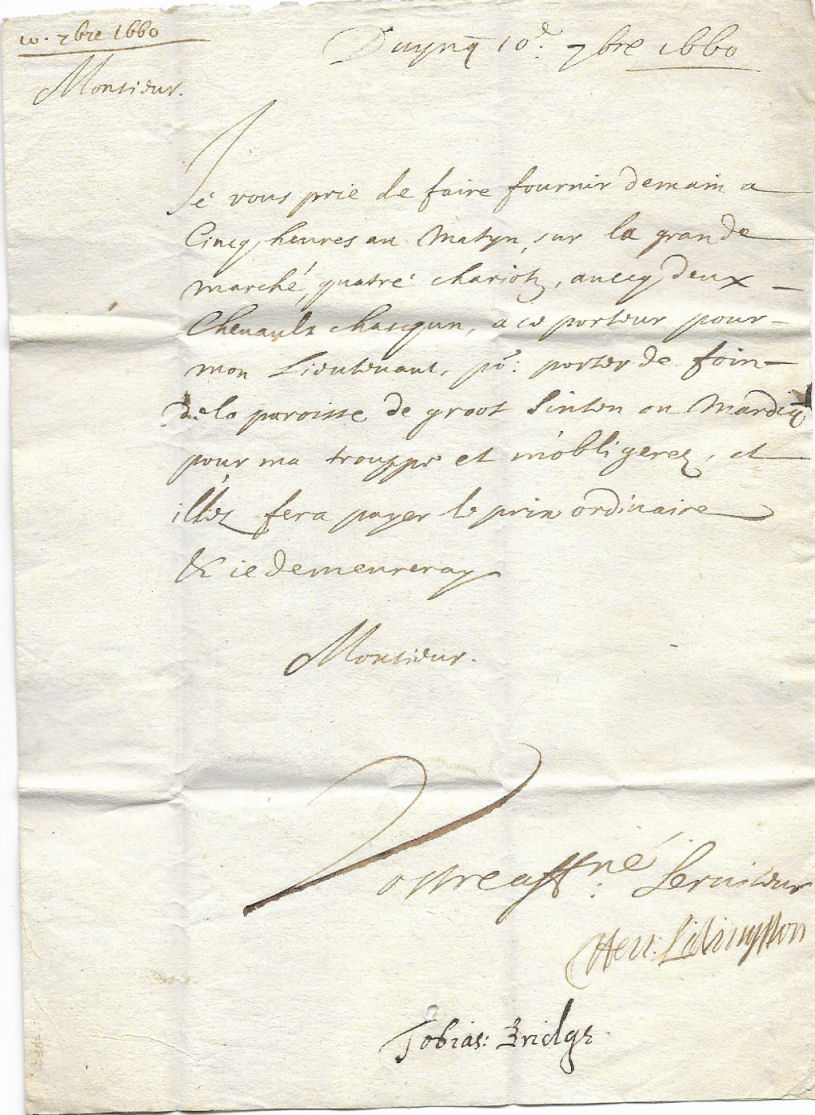 10. 7bre 1660
Duynq 10e. 7bre 1660
Monsieur.
Je vous prie de faire fournir demain a
Cincq heures au Matyn, sur la grande
marché, quatre chariotz, avecq deux
Chevaulx chascqun, a ce porteur pour
mon Lieutenant, po.r porter de foin
de la paroisse de groot Sinten ou Mardicq
pour ma trouppe et m'obligerez, et
illes fera payer le prix ordinaire
& ie demeureray
Monsieur.
Vostre affné Serviteur
Hen: Livingston
Tobias: Bridge